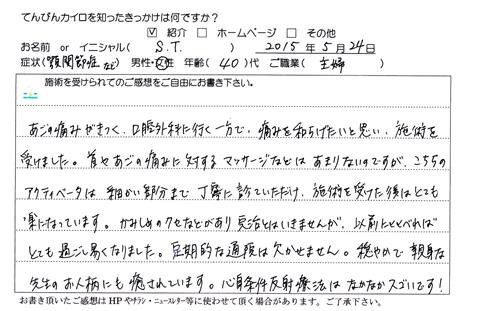 てんびんカイロを知ったきっかけは何ですか？
☑ 紹介 □ ホームページ □ その他
お名前 or イニシャル( S.T. ) 2015年5月24日
症状(顎関節症など) 男性・女性 年齢(40)代 ご職業(主婦)
施術を受けられてのご感想をご自由にお書き下さい。
あごの痛みがきつく、口腔外科に行く一方で、痛みを和らげたいと思い、施術を
受けました。首やあごの痛みに対するマッサージなどはあまりないのですが、こちらの
アクティベータは細かい部分まで丁寧に診ていただけ、施術を受けた後はとても
楽になっています。かみしめのクセなどがあり完治とはいきませんが、以前にくらべれば
とても過ごし易くなりました。定期的な通院は欠かせません。穏やかで親身な
先生のお人柄にも癒されています。心身条件反射療法はなかなかスゴイです!
お書き頂いたご感想はHPやチラシ・ニュースレター等に使わせて頂く場合があります。ご了承下さい。